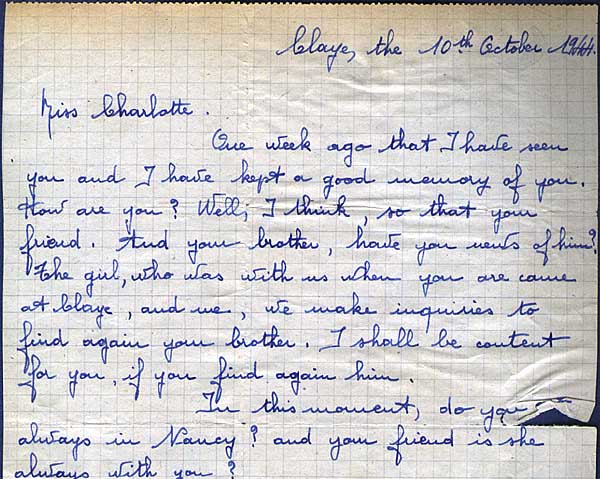 Claye, the 10th October 1944.
Miss Charlotte.
One week ago that I have seen
you and I have kept a good memory of you.
How are you? Well; I think, so that your
friend. And your brother, have you news of him?
The girl, who was with us when you are came
at Claye, and me, we make inquiries to
find again your brother. I shall be content
for you, if you find again him.
In this moment, do you
always in Nancy? and your friend is she
always with you?